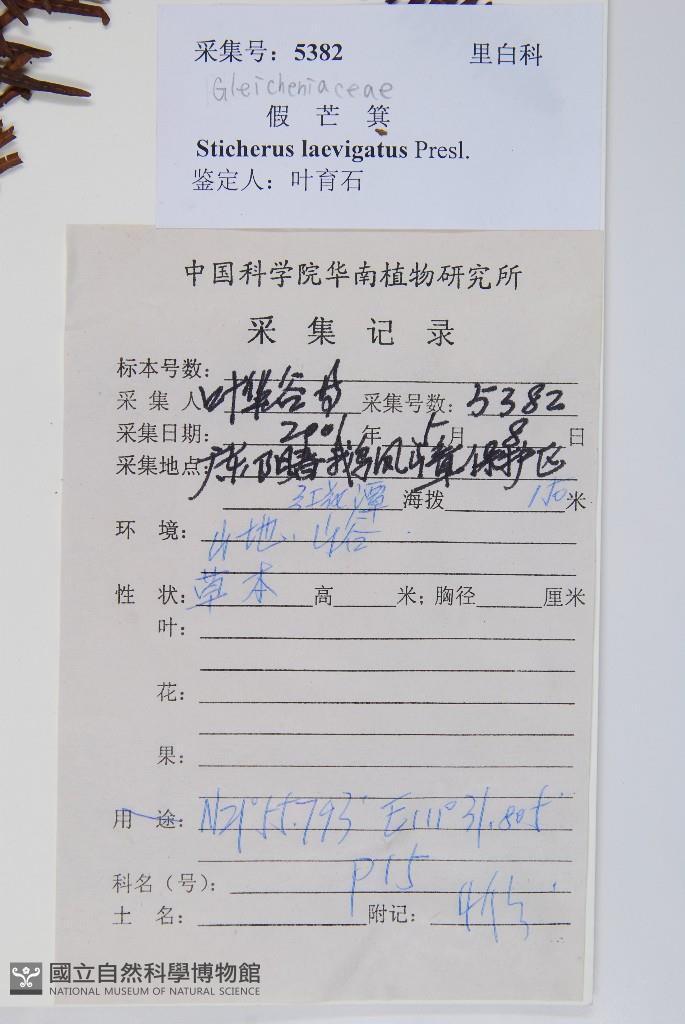 采集号：5382 里白科
Gleicheniaceae
假 芒 箕
Sticherus laevigatus Presl.
鉴定人：叶育石
中国科学院华南植物研究所
采 集 记 录
标本号数：
采 集 人 叶华谷 采集号数：5382
采集日期：2001 年 5 月 8 日
采集地点：广东阳春 保护区
潭 海拨 150 米
环 境：山地、山谷
性 状：草本 高 米；胸径 厘米
叶：
花：
果：
用 途：N21°55.793′ E111°31.805′
P15
科名（号）：
土 名： 附记：4份
國立自然科學博物館
NATIONAL MUSEUM OF NATURAL SCIENCE